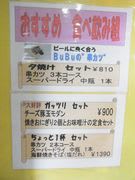 おすすめ 食べ飲み組
ビールに良く合う
BuBuの"串カツ"
夕焼け セット ¥810
串カツ 3本コース
スーパードライ 中瓶 1本
大好評 ガッツリ セット
チーズ豚玉モダン ¥900
焼きおにぎり2個とお味噌汁の定食セット
ちょっと1杯 セット
スーパードライ 中瓶 1本 ¥1390
海鮮焼きそば(塩だれ)